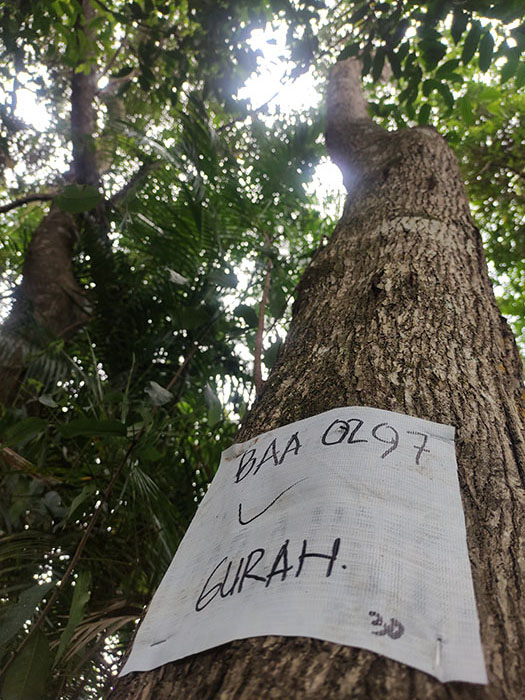 BAA 0297
✓
GURAH.
30